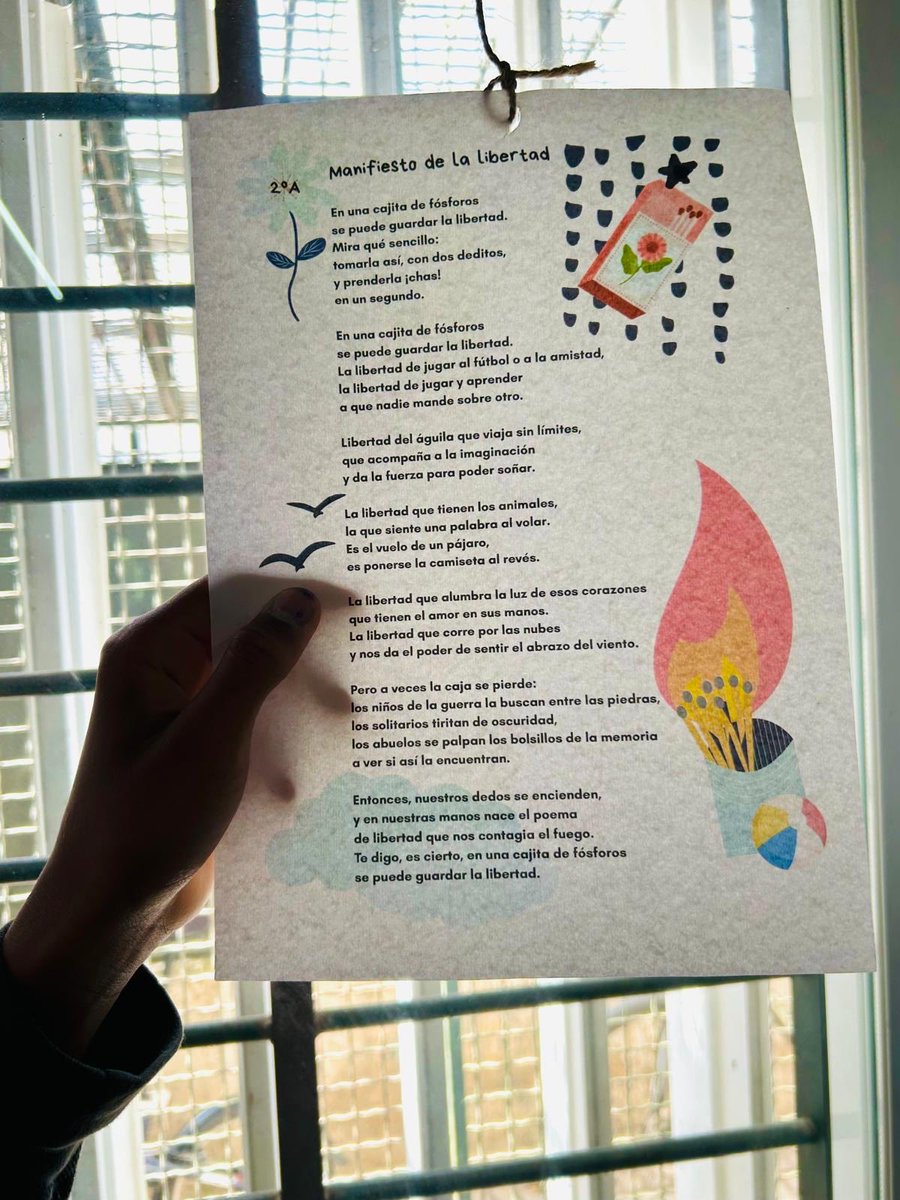 Manifiesto de la libertad
2ºA
En una cajita de fósforos
se puede guardar la libertad.
Mira qué sencillo:
tomarla así, con dos deditos,
y prenderla ¡chas!
en un segundo.
En una cajita de fósforos
se puede guardar la libertad.
La libertad de jugar al fútbol o a la amistad,
la libertad de jugar y aprender
a que nadie mande sobre otro.
Libertad del águila que viaja sin límites,
que acompaña a la imaginación
y da la fuerza para poder soñar.
La libertad que tienen los animales,
la que siente una palabra al volar.
Es el vuelo de un pájaro,
es ponerse la camiseta al revés.
La libertad que alumbra la luz de esos corazones
que tienen el amor en sus manos.
La libertad que corre por las nubes
y nos da el poder de sentir el abrazo del viento.
Pero a veces la caja se pierde:
los niños de la guerra la buscan entre las piedras,
los solitarios tiritan de oscuridad,
los abuelos se palpan los bolsillos de la memoria
a ver si así la encuentran.
Entonces, nuestros dedos se encienden,
y en nuestras manos nace el poema
de libertad que nos contagia el fuego.
Te digo, es cierto, en una cajita de fósforos
se puede guardar la libertad.